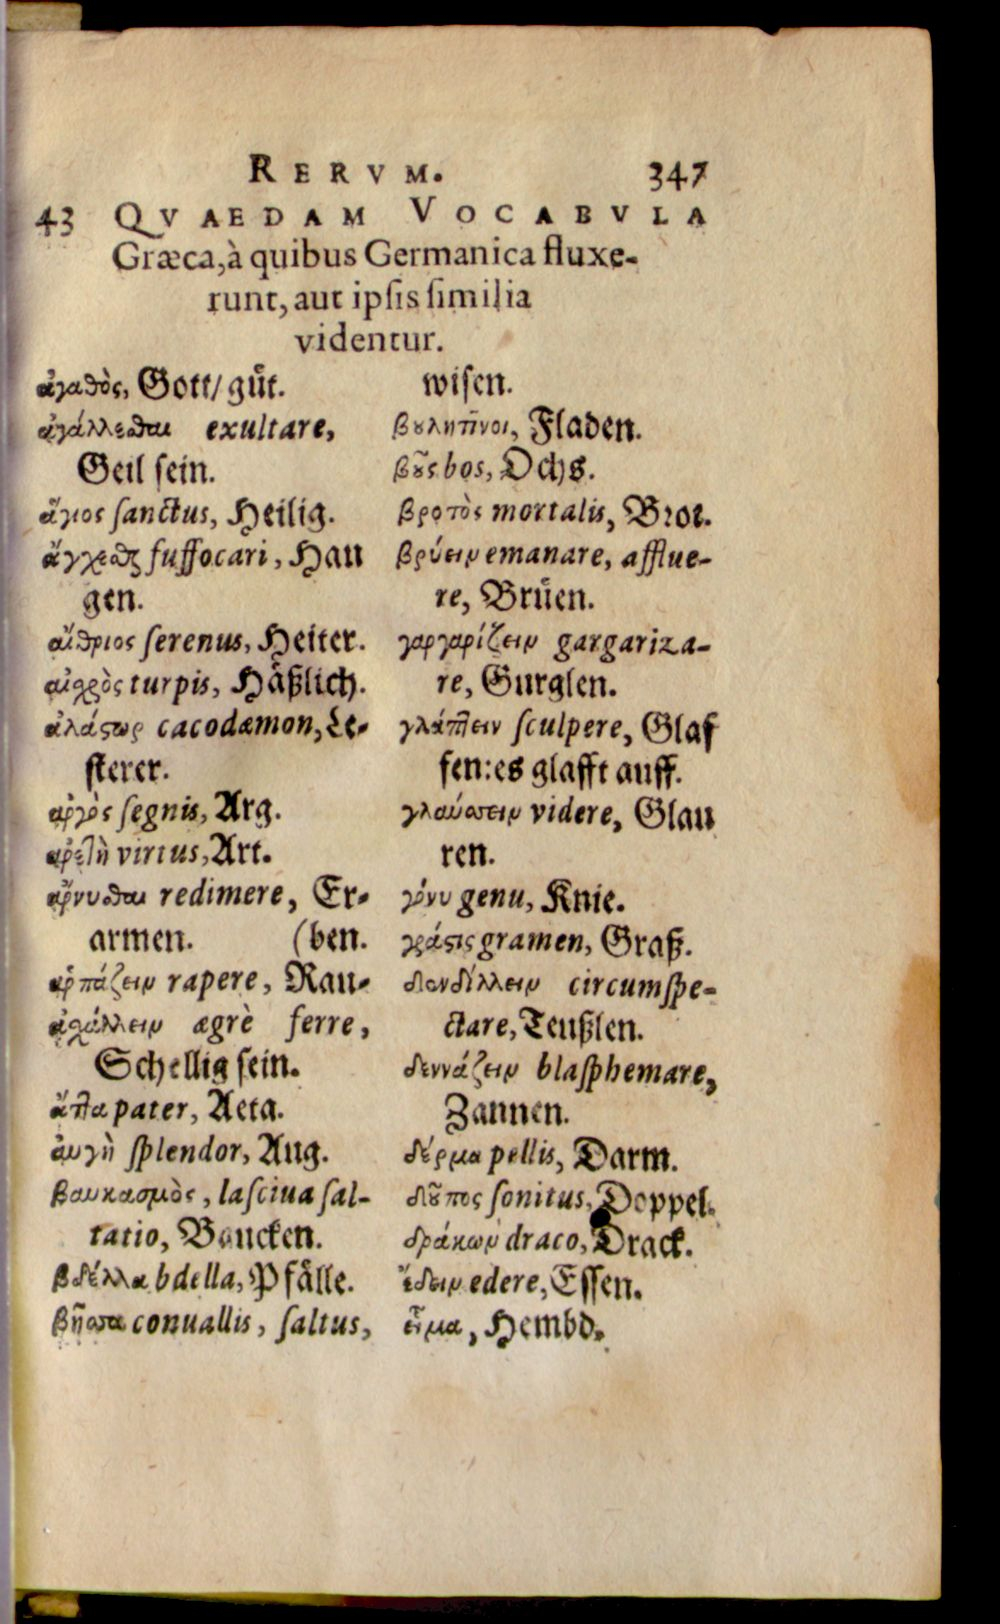 RERVM. 347
43 QVAEDAM VOCABVLA
Græca, à quibus Germanica fluxe-
runt, aut ipſis ſimilia
videntur.
ἀγαθὸς, Gott/ guͤt.
ἀγάλλεσθαι exultare,
Geil ſein.
ἅγιος ſanctus, Heilig.
ἄγχεσθαι ſuffocari, Han
gen.
αἴθριος ſerenus, Heiter.
αἰσχρὸς turpis, Haͤßlich.
ἀλάστωρ cacodæmon, Le-
ſterer.
ἀργὸς ſegnis, Arg.
ἀρετὴ virtus, Art.
ἄρνυσθαι redimere, Er-
armen. (ben.
ἁρπάζειν rapere, Rau-
ἀσχάλλειν ægrè ferre,
Schellig ſein.
ἄττα pater, Aeta.
ἀυγὴ ſplendor, Aug.
βαυκασμὸς, laſciua ſal-
tatio, Baucken.
βδέλλα bdella, Pfaͤlle.
βῆσσα conuallis, ſaltus,
wiſen.
βουλητῖνοι, Fladen.
βοῦς bos, Ochs.
βροτὸς mortalis, Brot.
βρύειν emanare, afflue-
re, Bruͤen.
γαργαρίζειν gargariza-
re, Gurglen.
γλάπτειν ſculpere, Glaf
fen: es glafft auff.
γλαύσσειν videre, Glau
ren.
γόνυ genu, Knie.
γράστις gramen, Graß.
διονδίλλειν circumſpe-
ctare, Teußlen.
δεννάζειν blaſphemare,
Zannen.
δέρμα pellis, Darm.
δοῦπος ſonitus, Doppel.
δράκων draco, Drack.
ἔδειν edere, Eſſen.
εἷμα, Hembd.